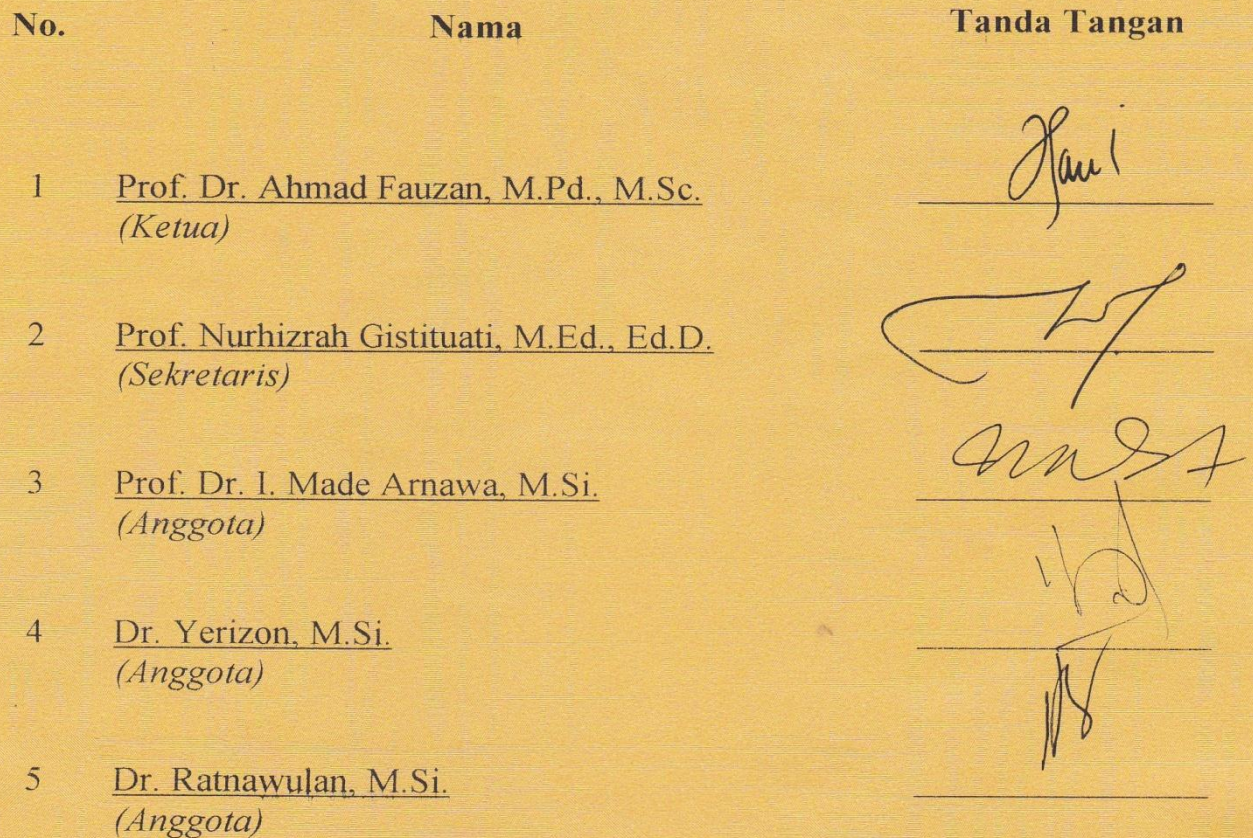 No. Nama Tanda Tangan
1 Prof. Dr. Ahmad Fauzan, M.Pd., M.Sc.
(Ketua)
2 Prof. Nurhizrah Gistituati, M.Ed., Ed.D.
(Sekretaris)
3 Prof. Dr. I. Made Arnawa, M.Si.
(Anggota)
4 Dr. Yerizon, M.Si.
(Anggota)
5 Dr. Ratnawulan, M.Si.
(Anggota)